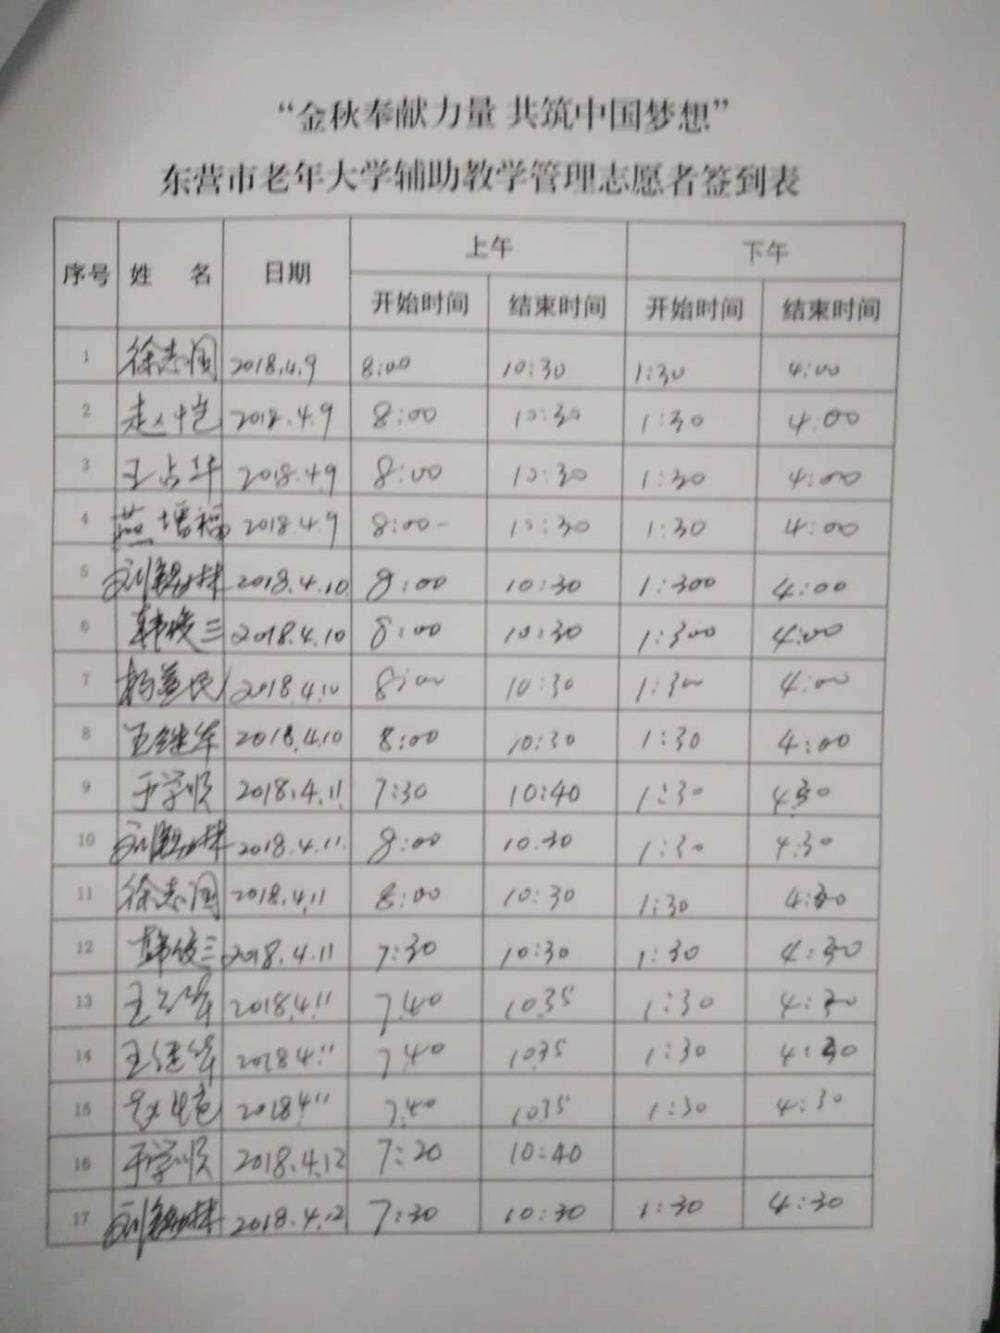 “金秋奉献力量 共筑中国梦想”
东营市老年大学辅助教学管理志愿者签到表
序号 姓 名 日期 上午 下午
开始时间 结束时间 开始时间 结束时间
1 徐志国 2018.4.9 8:00 10:30 1:30 4:00
2 赵才恺 2018.4.9 8:00 10:30 1:30 4:00
3 王占华 2018.4.9 8:00 10:30 1:30 4:00
4 燕增福 2018.4.9 8:00 10:30 1:30 4:00
5 2018.4.10 8:00 10:30 1:300 4:00
6 韩俊三 2018.4.10 8:00 10:30 1:300 4:00
7 杨益民 2018.4.10 8:00 10:30 1:30 4:00
8 王继华 2018.4.10 8:00 10:30 1:30 4:00
9 于学顺 2018.4.11 7:30 10:40 1:30 4:30
10 2018.4.11 8:00 10.30 1:30 4:30
11 徐志国 2018.4.11 8:00 10:30 1:30 4:30
12 韩俊三 2018.4.11 7:30 10:30 1:30 4:30
13 2018.4.11 7.40 1035 1:30 4:30
14 王继华 20184.11 7.40 1035 1:30 4:30
15 20184.11 7.40 1035 1:30 4:30
16 于学顺 2018.4.12 7:20 10:40
17 2018.4.12 7:30 10:30 1:30 4:30